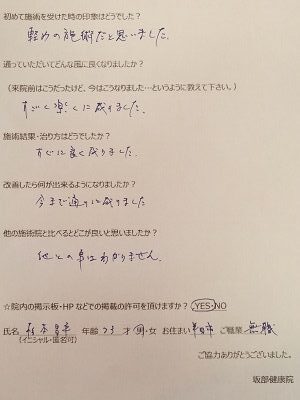 初めて施術を受けた時の印象はどうでした？
軽めの施術だと思いました。
通っていただいてどんな風に良くなりましたか？
（来院前はこうだったけど、今はこうなりました…というように教えて下さい。）
すごく楽に成りました。
施術結果・治り方はどうでしたか？
すぐに良く成りました。
改善したら何が出来るようになりましたか？
今まで通りに成りました
他の施術院と比べるとどこが良いと思いましたか？
他との事はわかりません。
☆院内の掲示板・HPなどでの掲載の許可を頂けますか？ YES・NO
氏名 年齢 73 才 男・女 お住まい ご職業 無職
(イニシャル・匿名可)
ご協力ありがとうございました。
坂部健康院